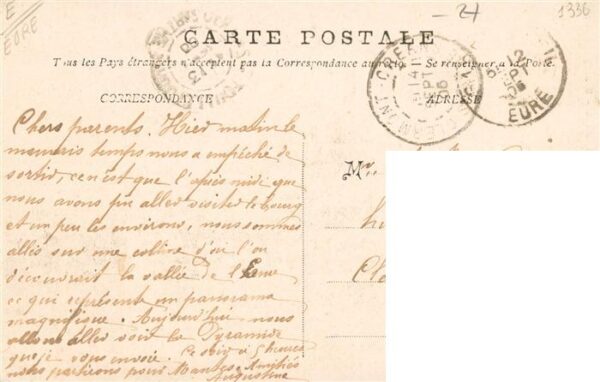 E
EURE
-24
1336
CARTE POSTALE
Tous les Pays étrangers n'acceptent pas la Correspondance au recto. Se renseigner à la Poste.
CORRESPONDANCE
ADRESSE
EURE
SEPT
06
Chers parents. Hier matin le
mauvais temps nous a empêché de
sortir, ce n'est que l'après midi que
nous avons pu aller visiter le bourg
et un peu les environs, nous sommes
allés sur une colline d'où l'on
découvrait la vallée de l'Eure
ce qui représente un panorama
magnifique. Aujourd'hui nous
allons aller voir la Pyramide
que je vous envoie. Ce soir à 5 heures
nous partirons pour Mantes. Amitiés
Augustine
M